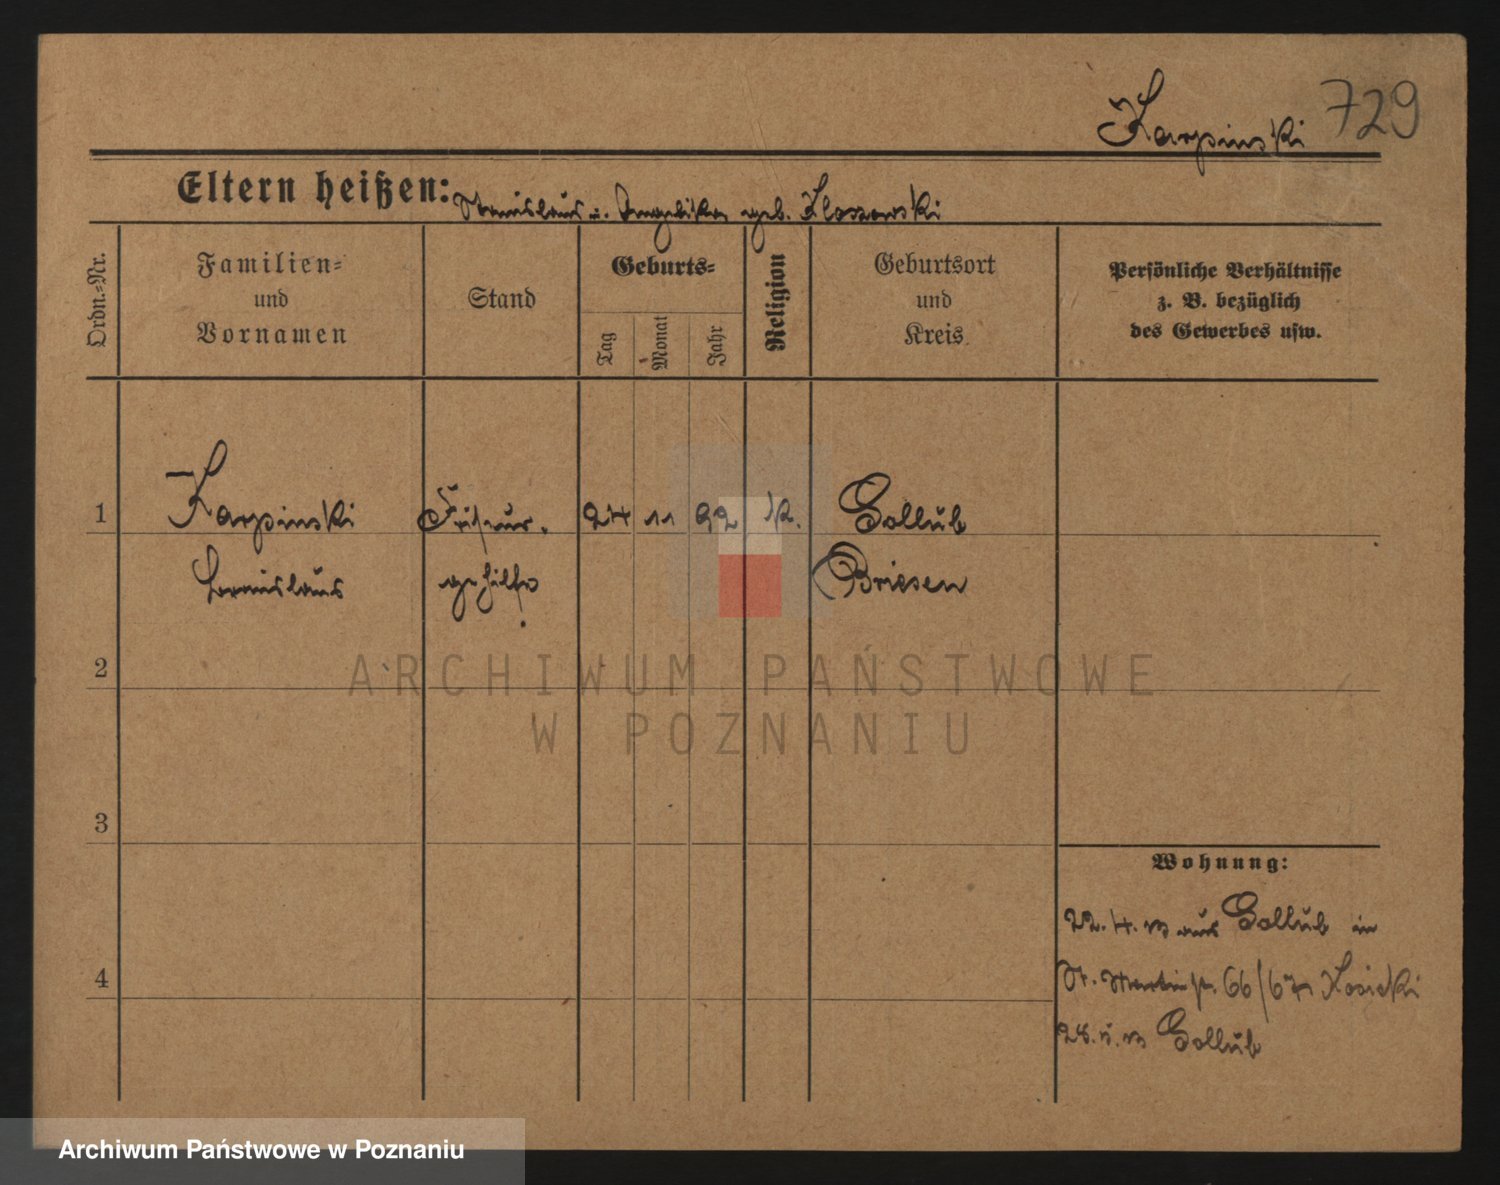 Karpinski 729
Eltern heißen: Stanislaus u. Angelika geb. Kloszowski
Ordn.=Nr.
Familien=
und
Vornamen
Stand
Geburts=
Tag
Monat
Jahr
Religion
Geburtsort
und
Kreis.
Persönliche Verhältnisse
z. B. bezüglich
des Gewerbes usw.
1
Karpinski Friseur. 24 11 92 K. Gollub
gehilfe Briesen
2
ARCHIWUM PAŃSTWOWE
W POZNANIU
3
Wohnung:
22.4. aus Gollub in
4
St. Martinstr. 66/67 Kosicki
Gollub
Archiwum Państwowe w Poznaniu